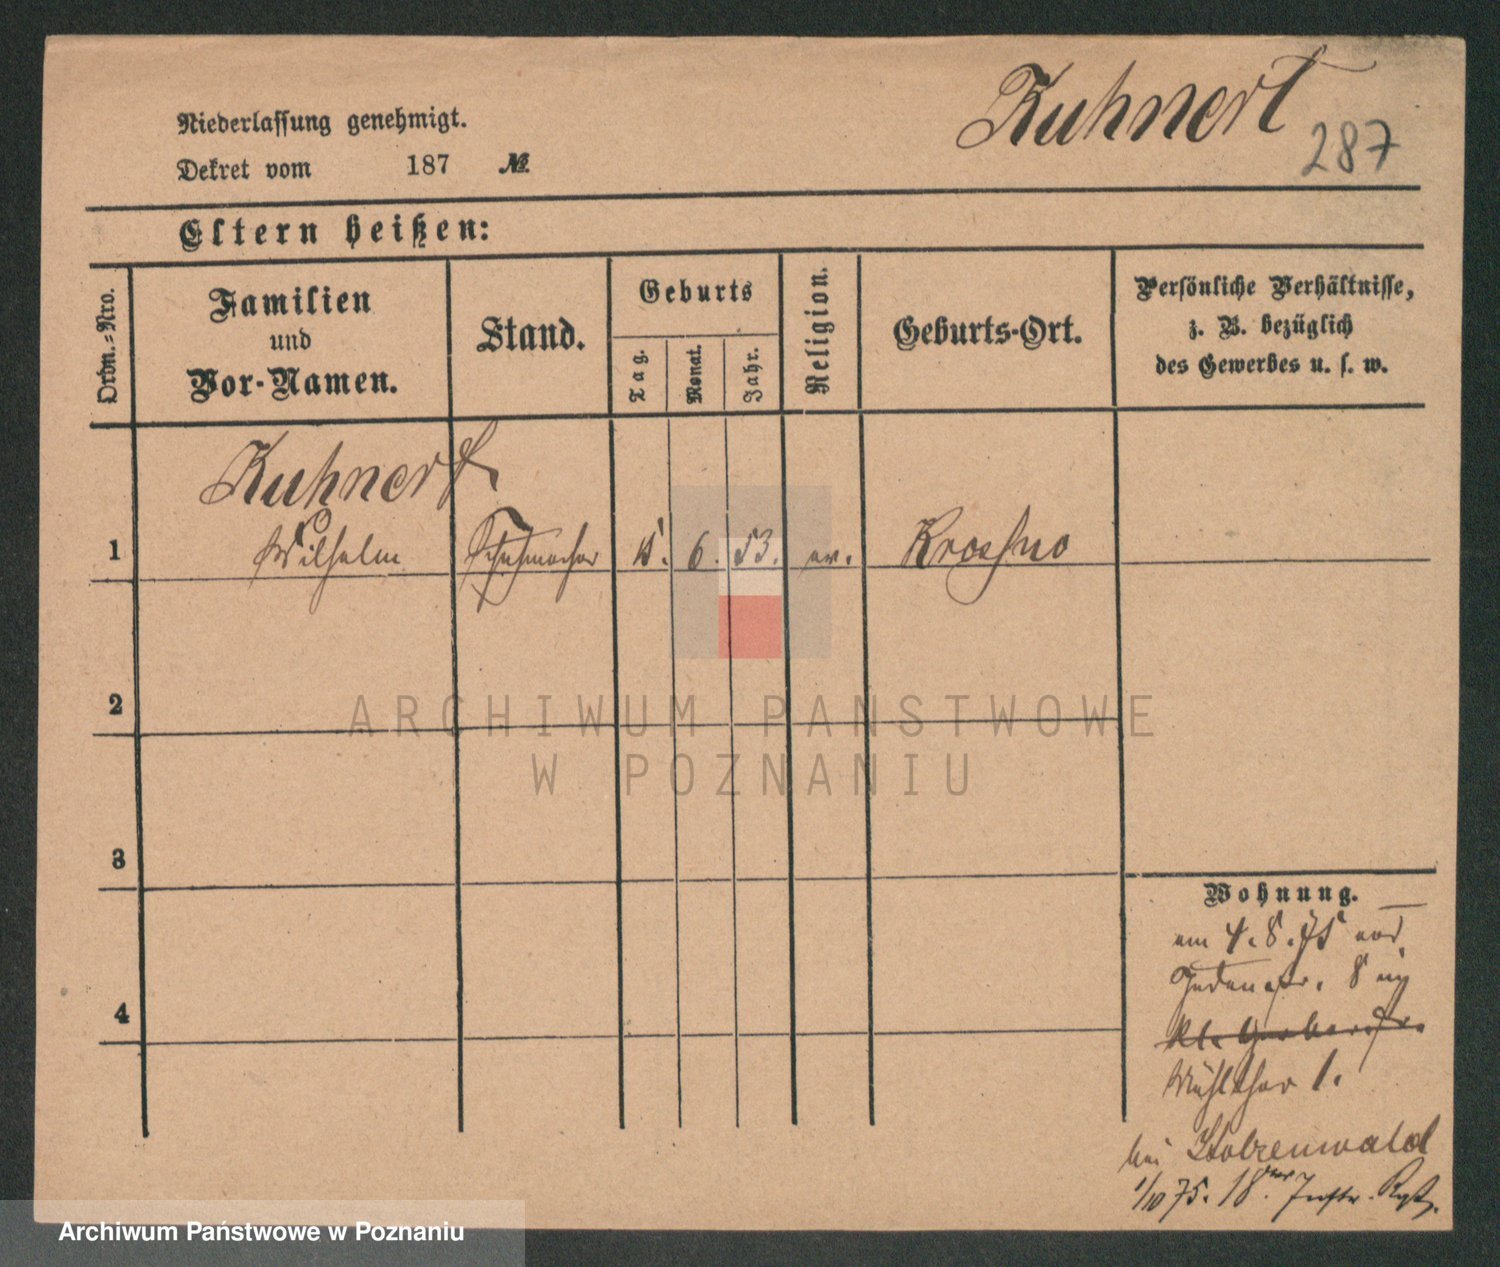 Kuhnert
287
Niederlassung genehmigt.
Dekret vom 187 №
Eltern heißen:
Ordn.-Nro.
Familien
und
Vor-Namen.
Stand.
Geburts
Tag.
Monat.
Jahr.
Religion.
Geburts-Ort.
Persönliche Verhältnisse,
z. B. bezüglich
des Gewerbes u. s. w.
Kuhnert
1 Wilhelm Schuhmacher 15. 6. 53. ev. Krossno
2
3
4
Wohnung.
am 4. 8. 75
8
Mühlthor 1.
bei Stolzenwald
1/10 75. 18
ARCHIWUM PAŃSTWOWE
W POZNANIU
Archiwum Państwowe w Poznaniu